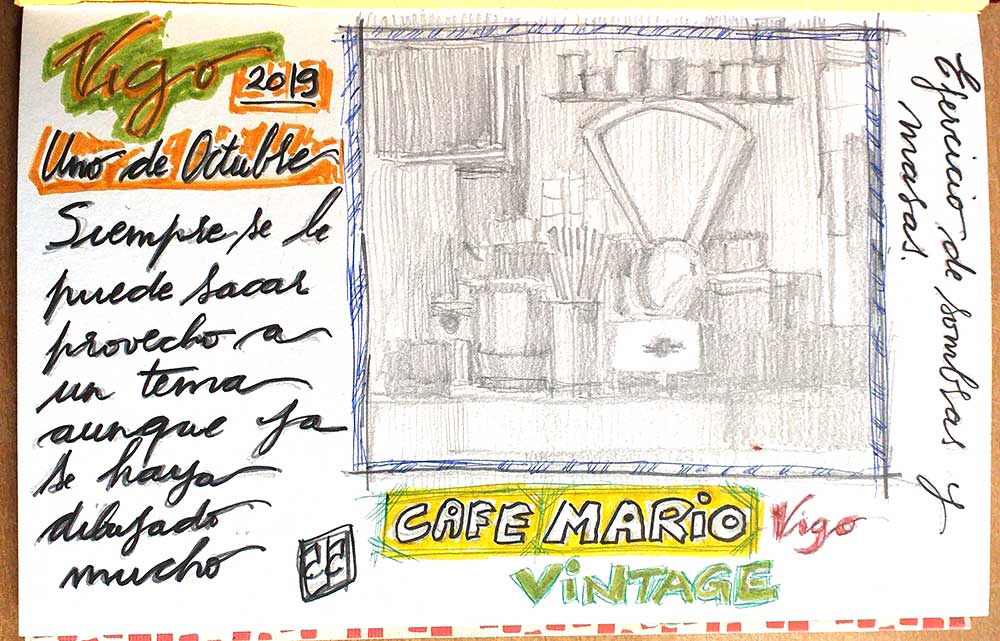 Vigo
2019
Uno de Octubre
Siempre se le
puede sacar
provecho a
un tema
aunque ya
se haya
dibujado
mucho
Ejercicio de sombras y
masas.
CAFE MARiO
Vigo
ViNTAGE